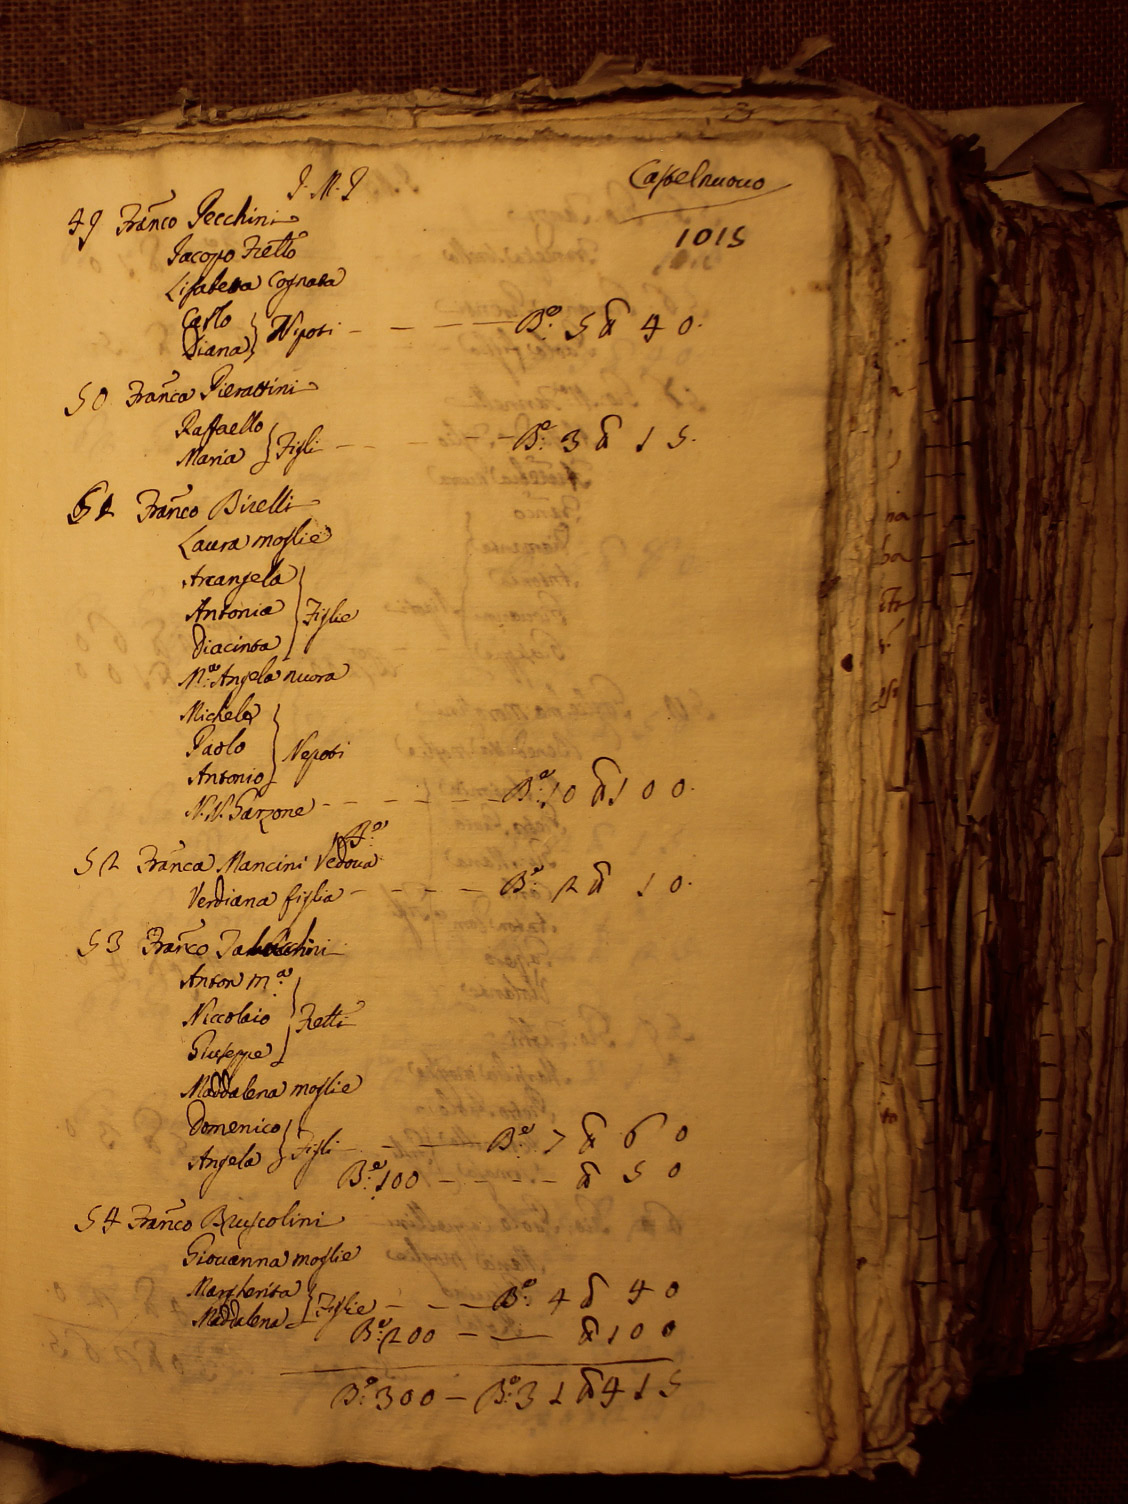 J. M. J
Castelnuovo
1015
49 Fran.co Pecchini
Jacopo Fratto
Lisabetta Cognata
Carlo
Diana } Nipoti - - - B.e 5 ₰ 40.
50 Fran.ca Pierattini
Raffaello
Maria } Figli - - - B.e 3 ₰ 15.
51 Fran.co Birelli
Laura moglie
Arcangela
Antonia } Figlie
Diacinta
M.a Angela nuora
Michele
Paolo } Nepoti
Antonio
N. N. Garzone - - - - - B.e 10 ₰ 100.
52 Fran.ca Mancini Vedova
Verdiana figlia - - - - B.e 2 ₰ 10.
53 Fran.co
Anton M.a
Niccolaio } Fratti
Giuseppe
Maddalena moglie
Domenico
Angela } Figli - - - B.e 7 ₰ 60
B.e 100 - - - - ₰ 50
54 Fran.co Bruscolini
Giovanna moglie
Margherita
Maddalena } Figlie - - - B.e 4 ₰ 40
B.e 200 - - ₰ 100
B.e 300 - B.e 31 ₰ 415